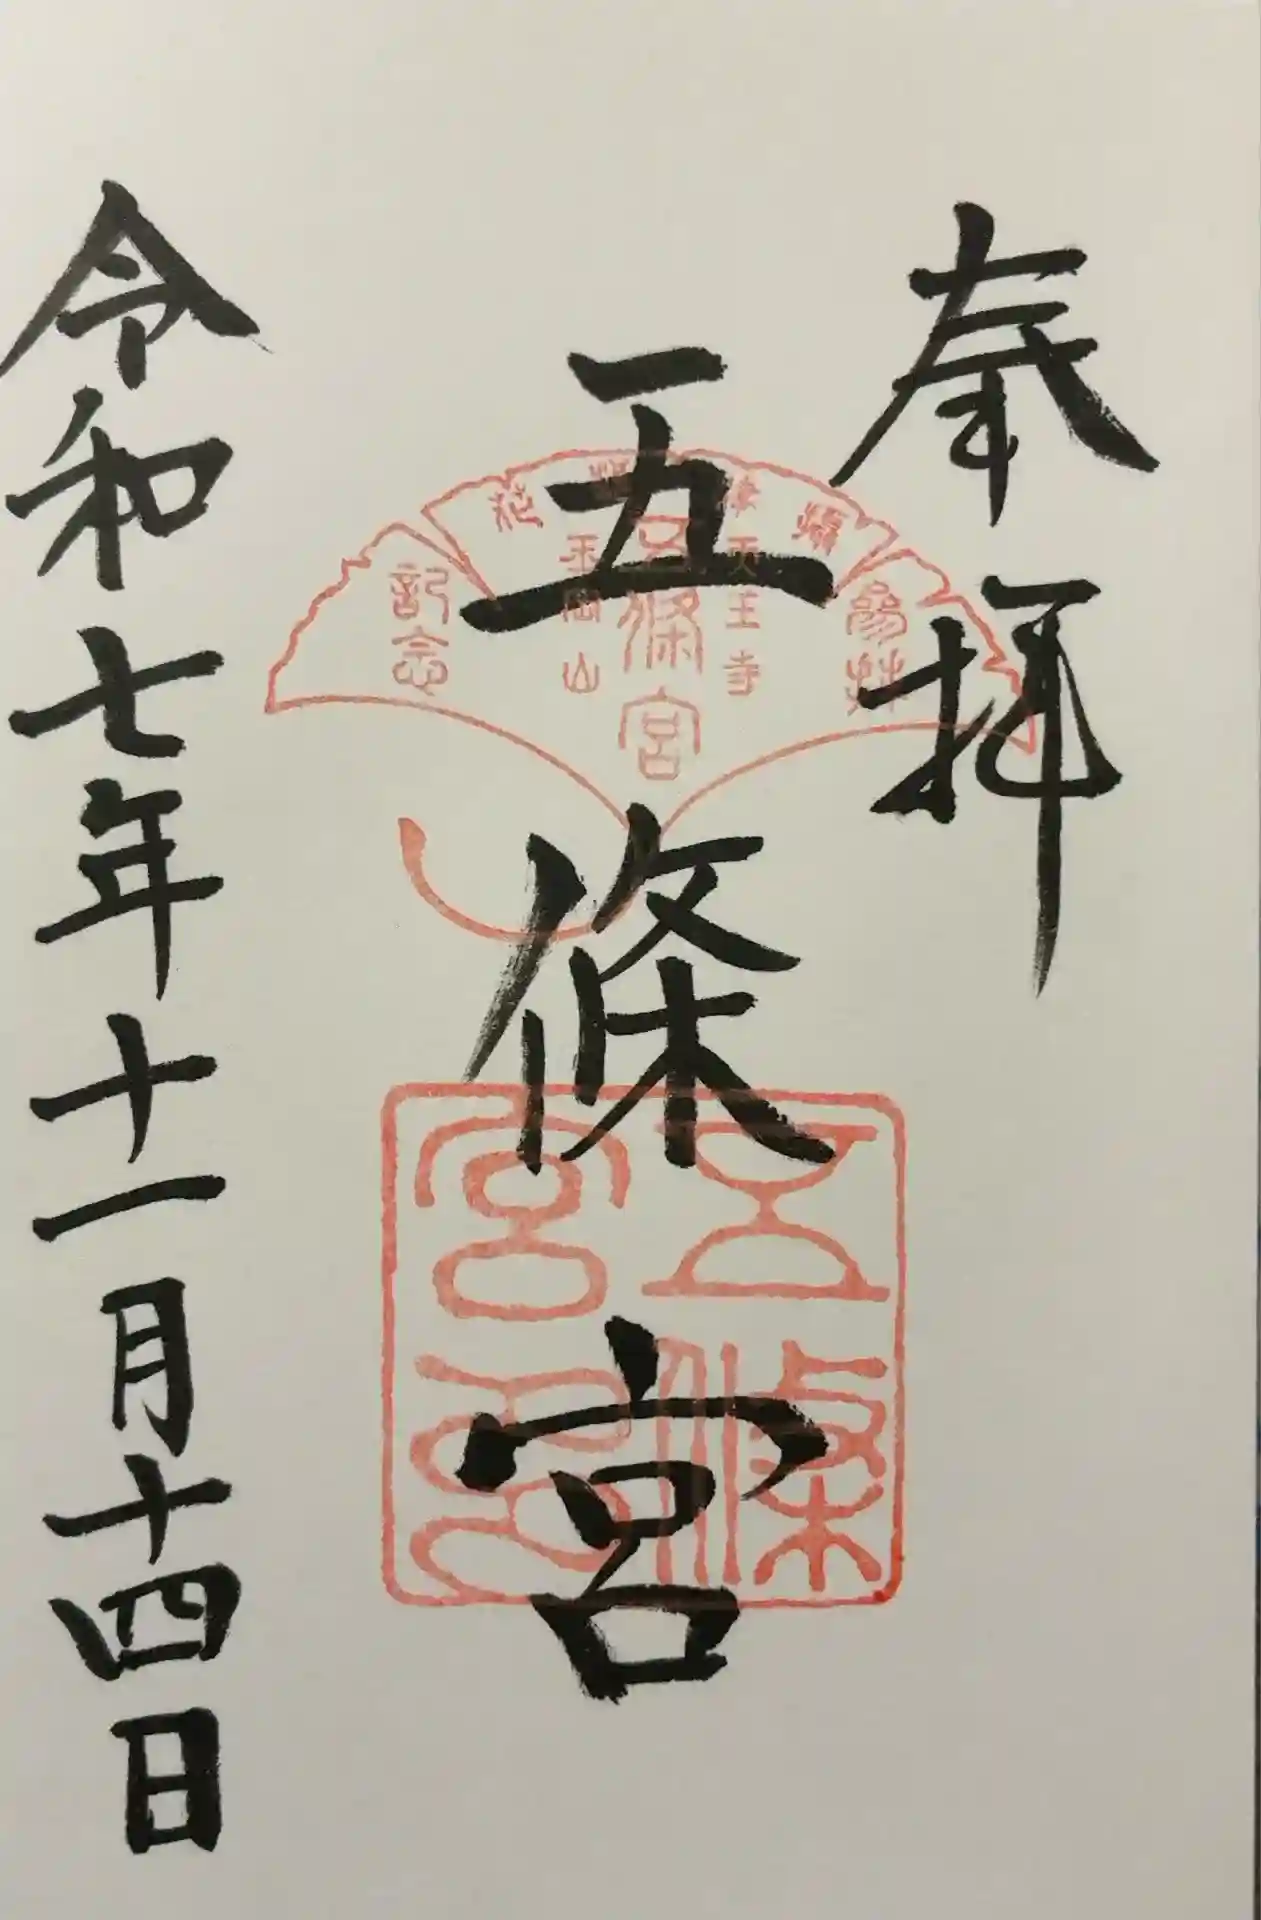 奉拝
五條宮
令和七年十一月十四日
参拝
天王寺
五條宮
玉造山
記念
五條宮